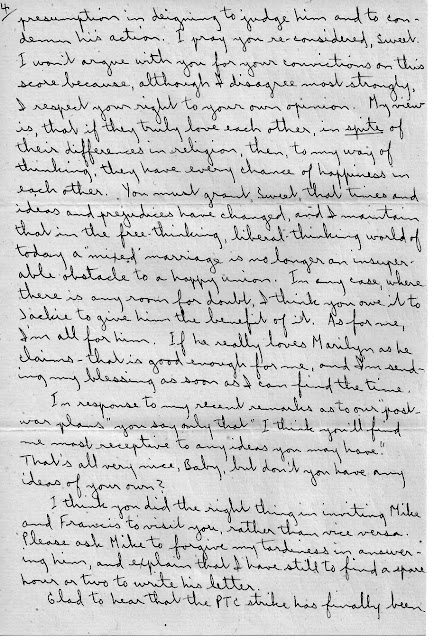 4/
presumption in deigning to judge him and to con-
demn his action. I pray you re-considered, Sweet.
I won't argue with you for your convictions on this
score because, although I disagree most strongly,
I respect your right to your own opinion. My view
is, that if they truly love each other, in spite of
their differences in religion, then, to my way of
thinking, they have every chance of happiness in
each other. You must grant, Sweet, that times and
ideas and prejudices have changed, and I maintain
that in the free-thinking, liberal-thinking world of
today a "mixed" marriage is no longer an insuper-
able obstacle to a happy union. In any case, where
there is any room for doubt, I think you owe it to
Jackie to give him the benefit of it. As for me,
I'm all for him. If he really loves Marilyn as he
claims - that is good enough for me, and I'm send-
ing my blessing as soon as I can find the time.
In response to my recent remarks as to our "post-
war plans" you say only that "I think you'll find
me most receptive to any ideas you may have."
That's all very nice, Baby, but don't you have any
ideas of your own?
I think you did the right thing in inviting Mike
and Francis to visit you, rather than vice versa.
Please ask Mike to forgive my tardiness in answer-
ing him, and explain that I have still to find a spare
hour or two to write his letter.
Glad to hear that the PTC strike has finally been